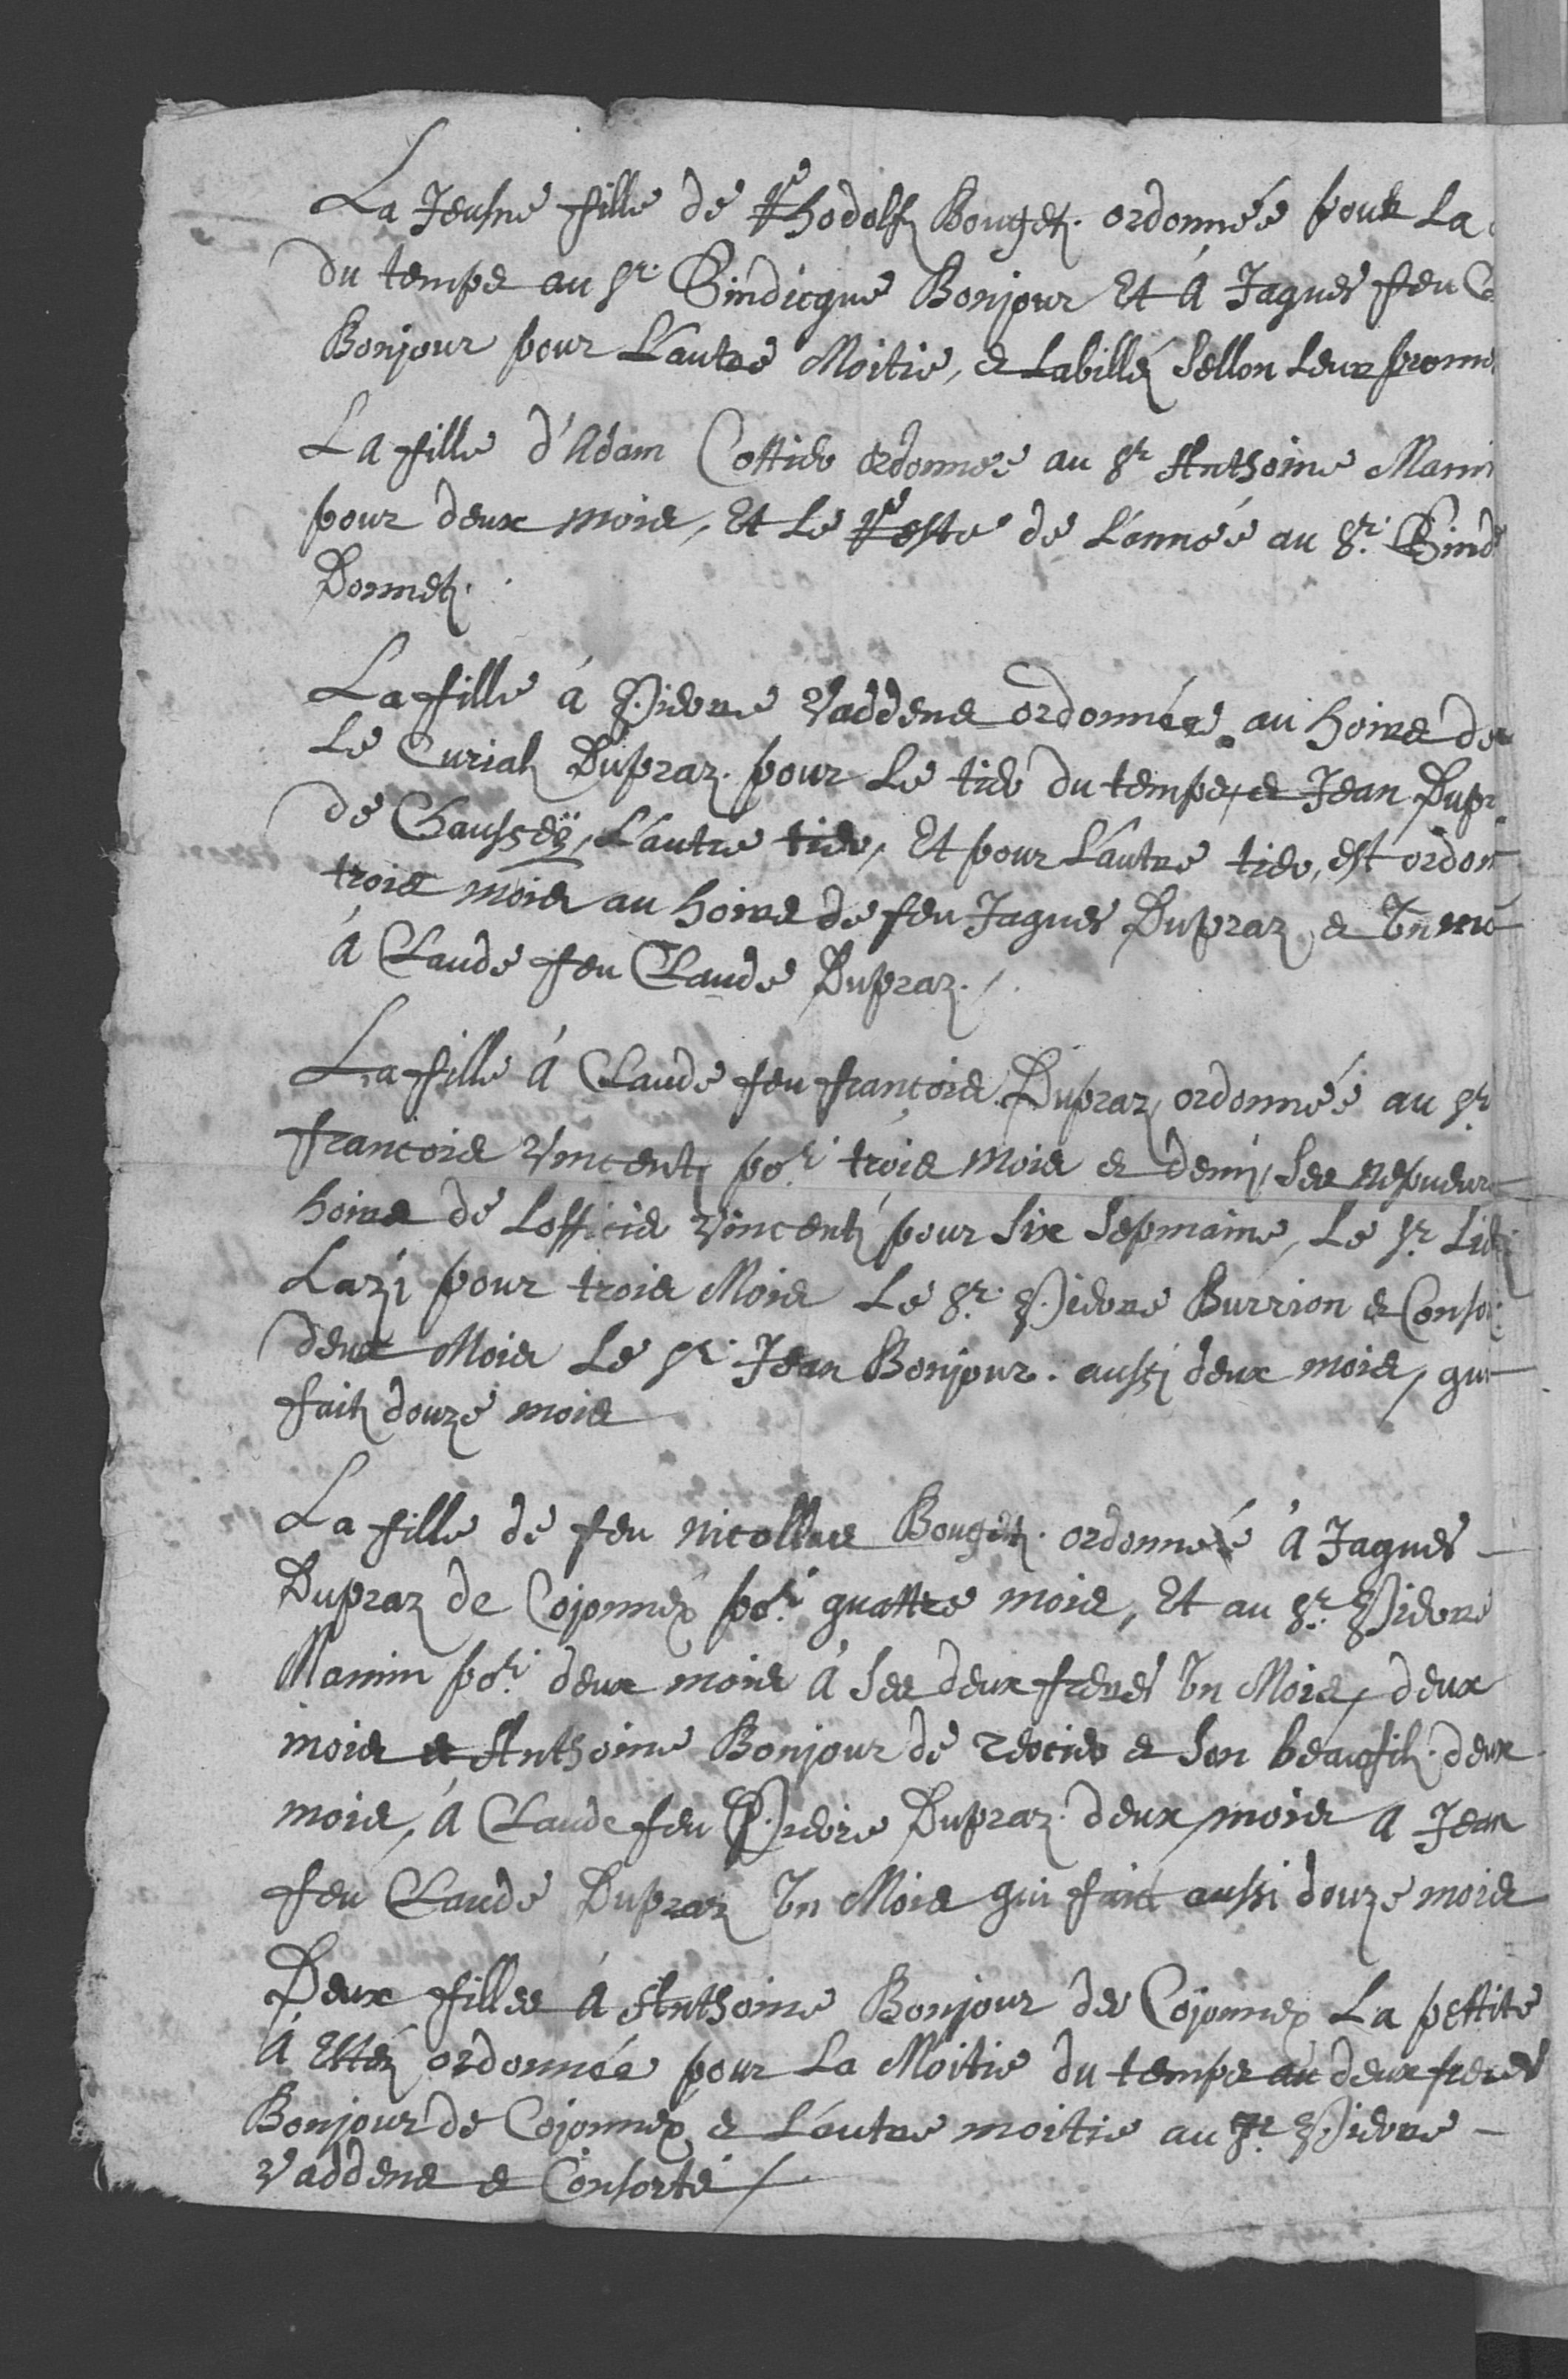 La Jeusne fille de Rhodolf Bouget. ordonnée pour La
du temps au Sr. Sindicque Bonjour Et à Jaques feu
Bonjour pour L'autre Moitie, & Labillé Sellon Leur prome
La fille d'Adam Cottier ordonnée au Sr Anthoine Mami
pour deux mois, Et Le Reste de L'année au Sr. Sind
Donnet.
La fille à Pierre Vaddens ordonnée au hoirs de
Le Curial Dupraz. pour Le tier du temps, & Jean Dupr
de Chaussey, L'autre tier, Et pour L'autre tier, est ordon
trois mois au hoirs de feu Jaques Dupraz, & Un mo
à Claude feu Claude Dupraz.
La fille à Claude feu françois Dupraz ordonnée au Sr
françois Vincent por. trois mois & demi, Ses nepveurs
hoirs de Lofficier Vincent pour Six Sepmaine, Le Sr.
Lazi pour trois Mois Le Sr. Pierre Burrion & Conso
deux Mois Le Sr. Jean Bonjour. aussi deux mois, qui
fait douze mois
La fille de feu Nicollas Bouget. ordonnée à Jaques
Dupraz de Cojonnex por. quattre mois, Et au Sr. Pierre
Mamin por. deux mois à Ses deux freres Un Mois, deux
mois & Anthoine Bonjour de & Son beaufils. deux
mois, à Claude feu Pierre Dupraz. deux mois a Jean
feu Claude Dupraz Un Mois qui fait aussi douze mois
Deux filles à Anthoine Bonjour de Cojonnex La pettite
à Etté ordonnée pour La Moitie du temps au deux freres
Bonjour de Cojonnex & L'autre moitie au Sr. Pierre
Vaddens & Consorts